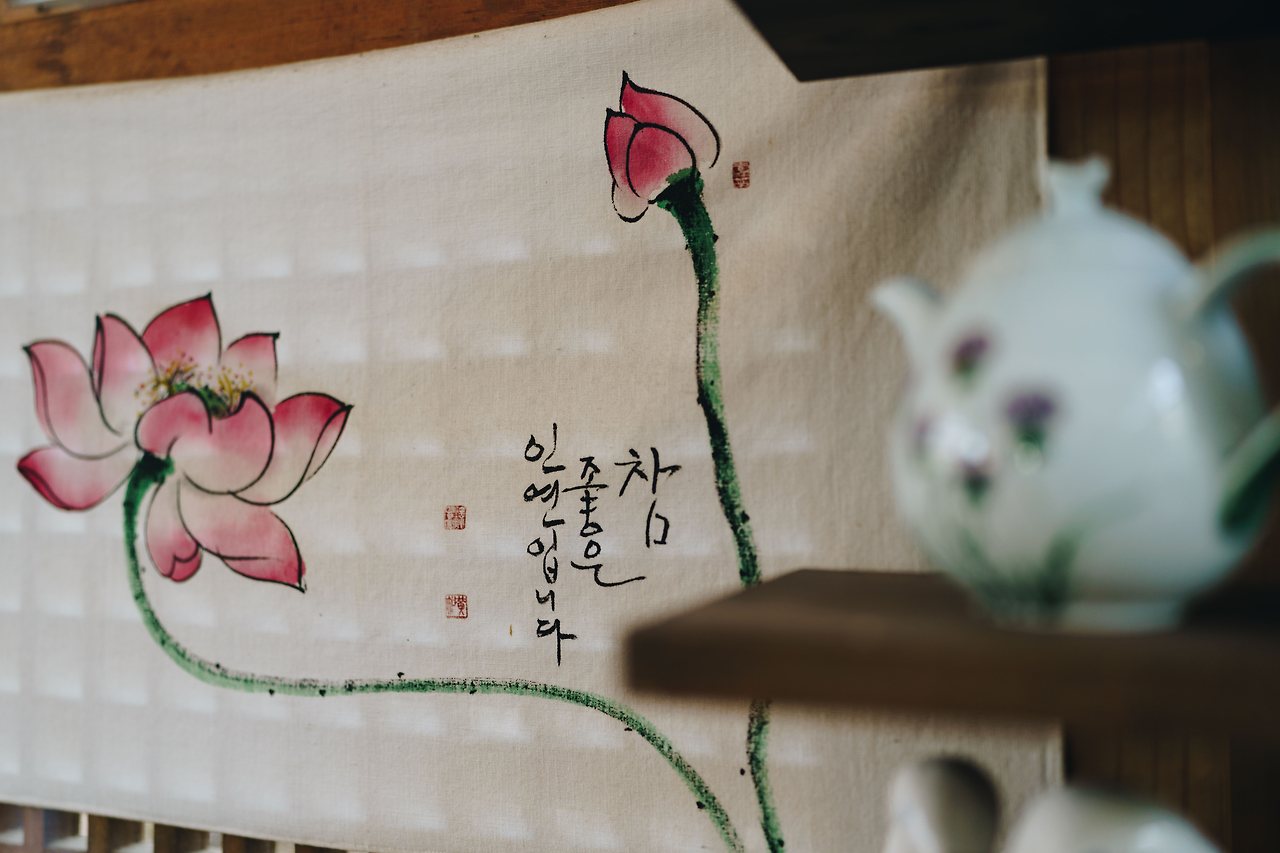 참
좋은
인연입니다